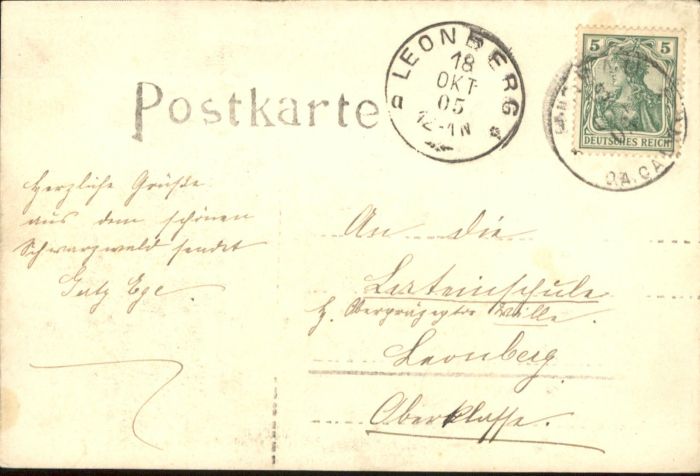 Postkarte
LEONBERG
18
OKT
05
12-1N
5 5
DEUTSCHES REICH
O.A. CALW
Herzliche Grüße
aus dem schönen
Schwarzwald sendet
Ege.
An die
Lateinschule
H. Oberpräzeptor Wille.
Leonberg
Oberklasse.